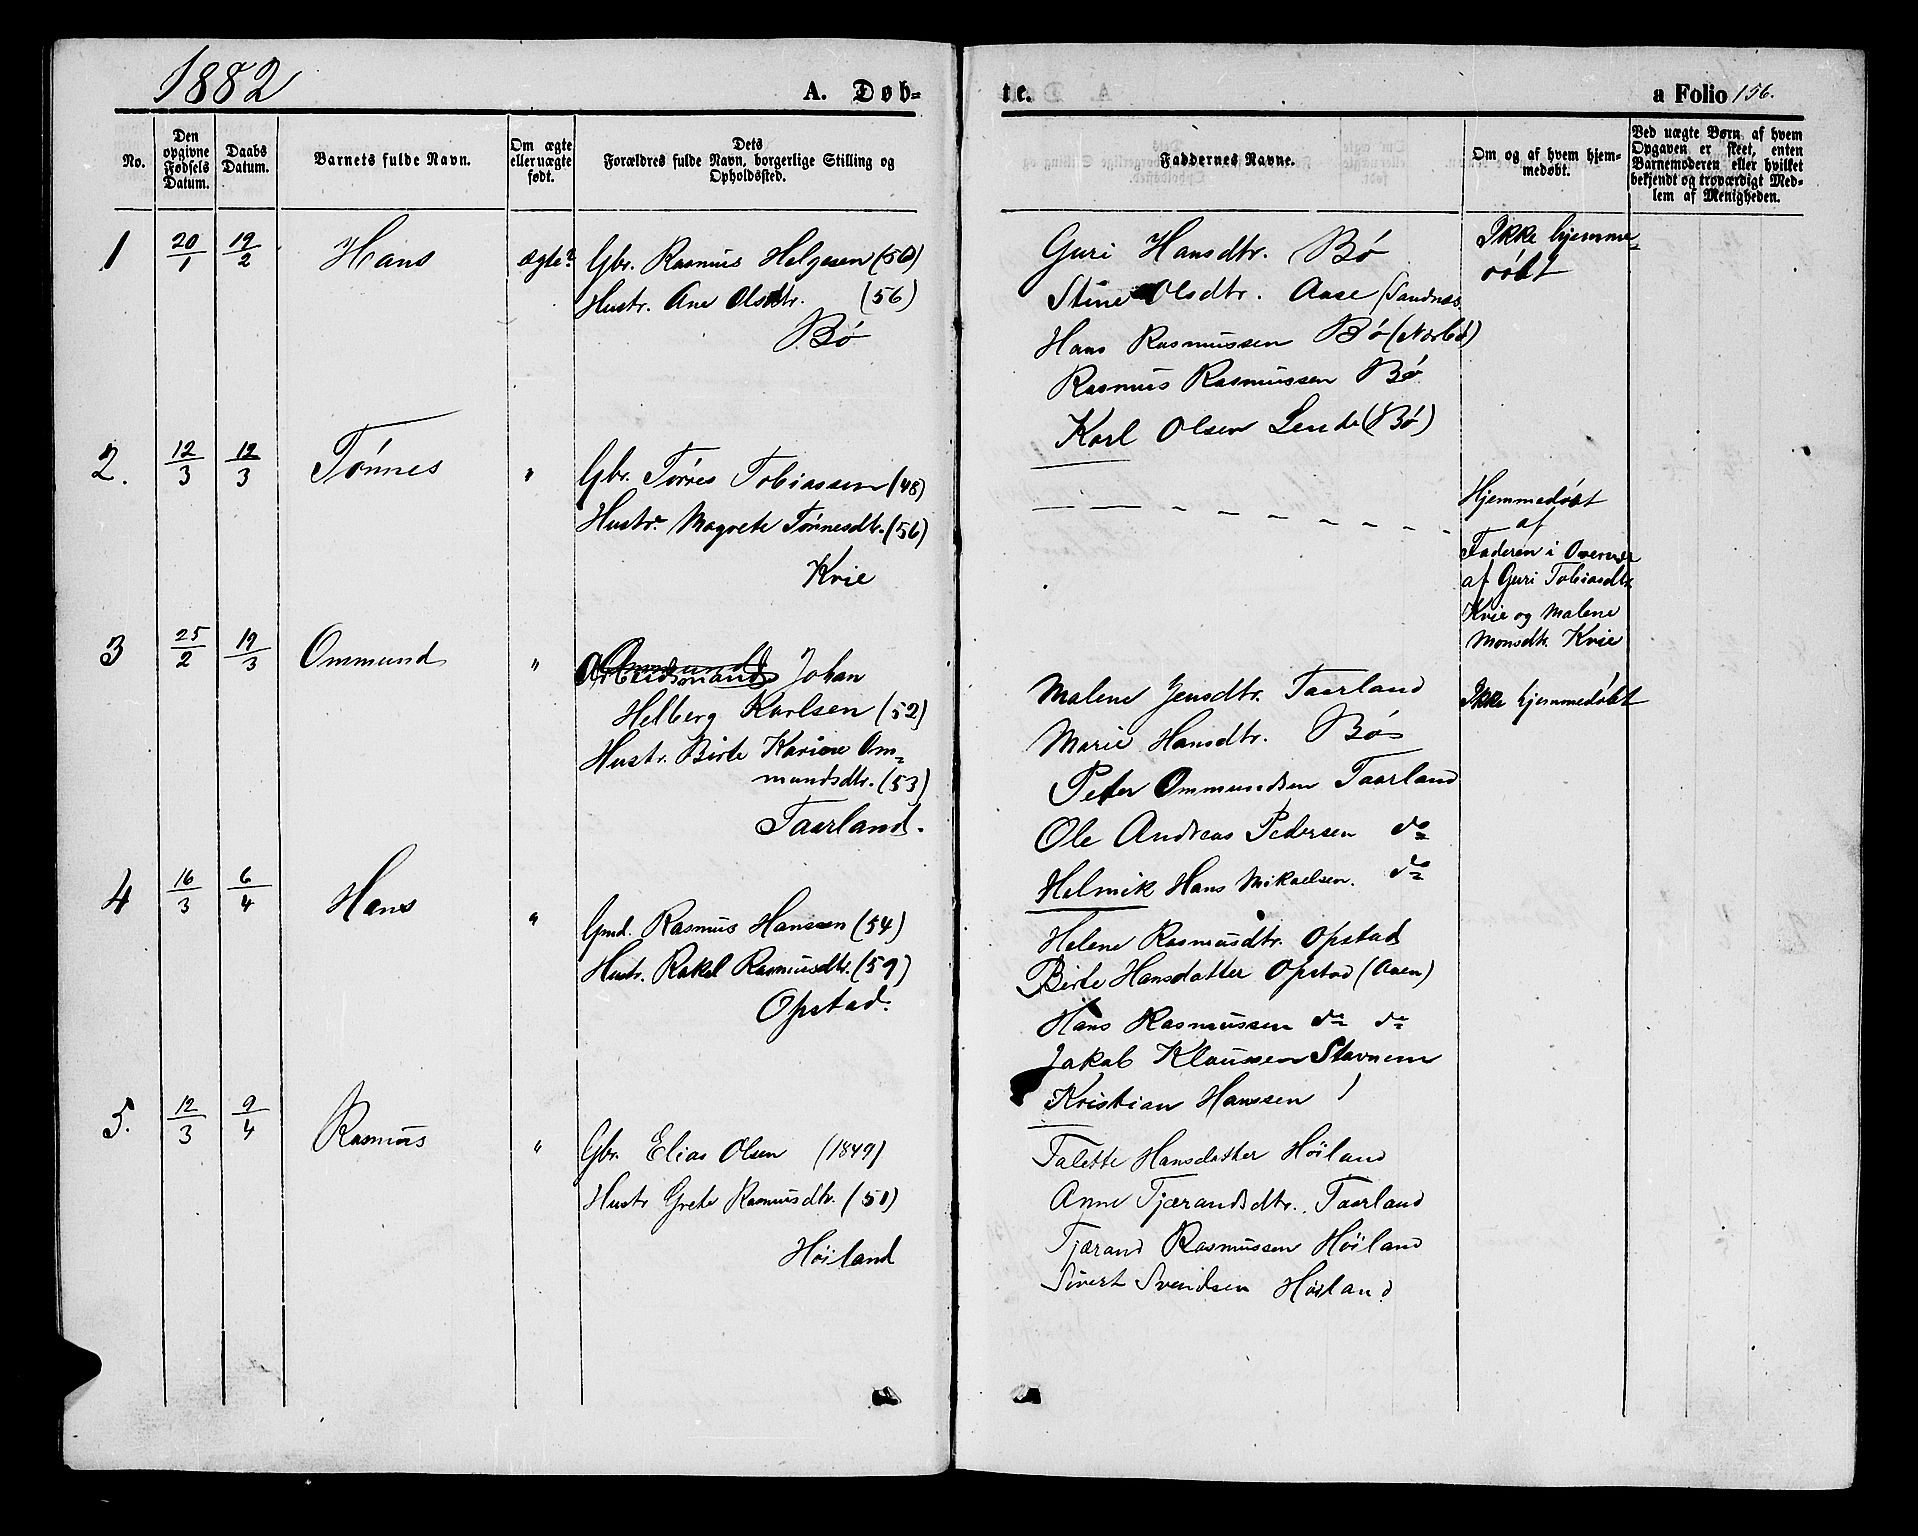 1882
A. Døb-
te.
a Folio 156.
No.
Den opgivne Fødsels Datum.
Daabs Datum.
Barnets fulde Navn.
Om ægte eller uægte født.
Dets Forældres fulde Navn, borgerlige Stilling og Opholdssted.
Faddernes Navne.
Om og af hvem hjem-
medøbt.
Ved uægte Børn, af hvem
Opgaven er skeet, enten
Barnemoderen eller hvilket
bekjendt og troværdigt Med-
lem af Menigheden.
1 20/1 19/2 Hans ægte
Gbr. Rasmus Helgesen (50)
Hustr. Ane Olsdtr. (56)
Bø
Guri Hansdtr. Bø
Stine Olsdtr. Aase (Sandnes
Hans Rasmussen Bø (Norbø)
Rasmus Rasmussen Bø
Karl Olsen Lende (Bø)
Ikke hjemme-
døbt
2. 12/3 12/3 Tønnes "
Gbr. Tørres Tobiassen (48)
Hustr. Magrete Tønnesdtr. (56)
Kvie
Hjemmedøbt
af
Faderen i Overvær
af Guri Tobiasdtr
Kvie og Malene
Monsdtr. Kvie
3 25/2 19/3 Ommund "
Arbeidsmand Johan
Helberg Karlsen (52)
Hustr. Birte Karine Om-
mundsdtr. (53)
Taarland.
Malene Jensdtr. Taarland
Marie Hansdtr. Bø
Peter Ommundsen Taarland
Ole Andreas Pedersen do
Helmik Hans Mikaelsen. do
Ikke hjemmedøbt
4 16/3 6/4 Hans "
Gmd. Rasmus Hanssen (54)
Hustr. Rakel Rasmusdtr. (59)
Opstad.
Helene Rasmusdtr. Opstad
Birte Hansdatter Opstad (Aaen)
Hans Rasmussen do do
Jakob Klaussen Stavnem
Kristian Hanssen
5. 12/3 9/4 Rasmus "
Gbr. Elias Olsen (1849)
Hustr Grete Rasmusdtr. (51)
Høiland
Talette Hansdatter Høiland
Anne Tjærandsdtr. Taarland
Tjærand Rasmussen Høiland
Sivert Svendsen Høiland